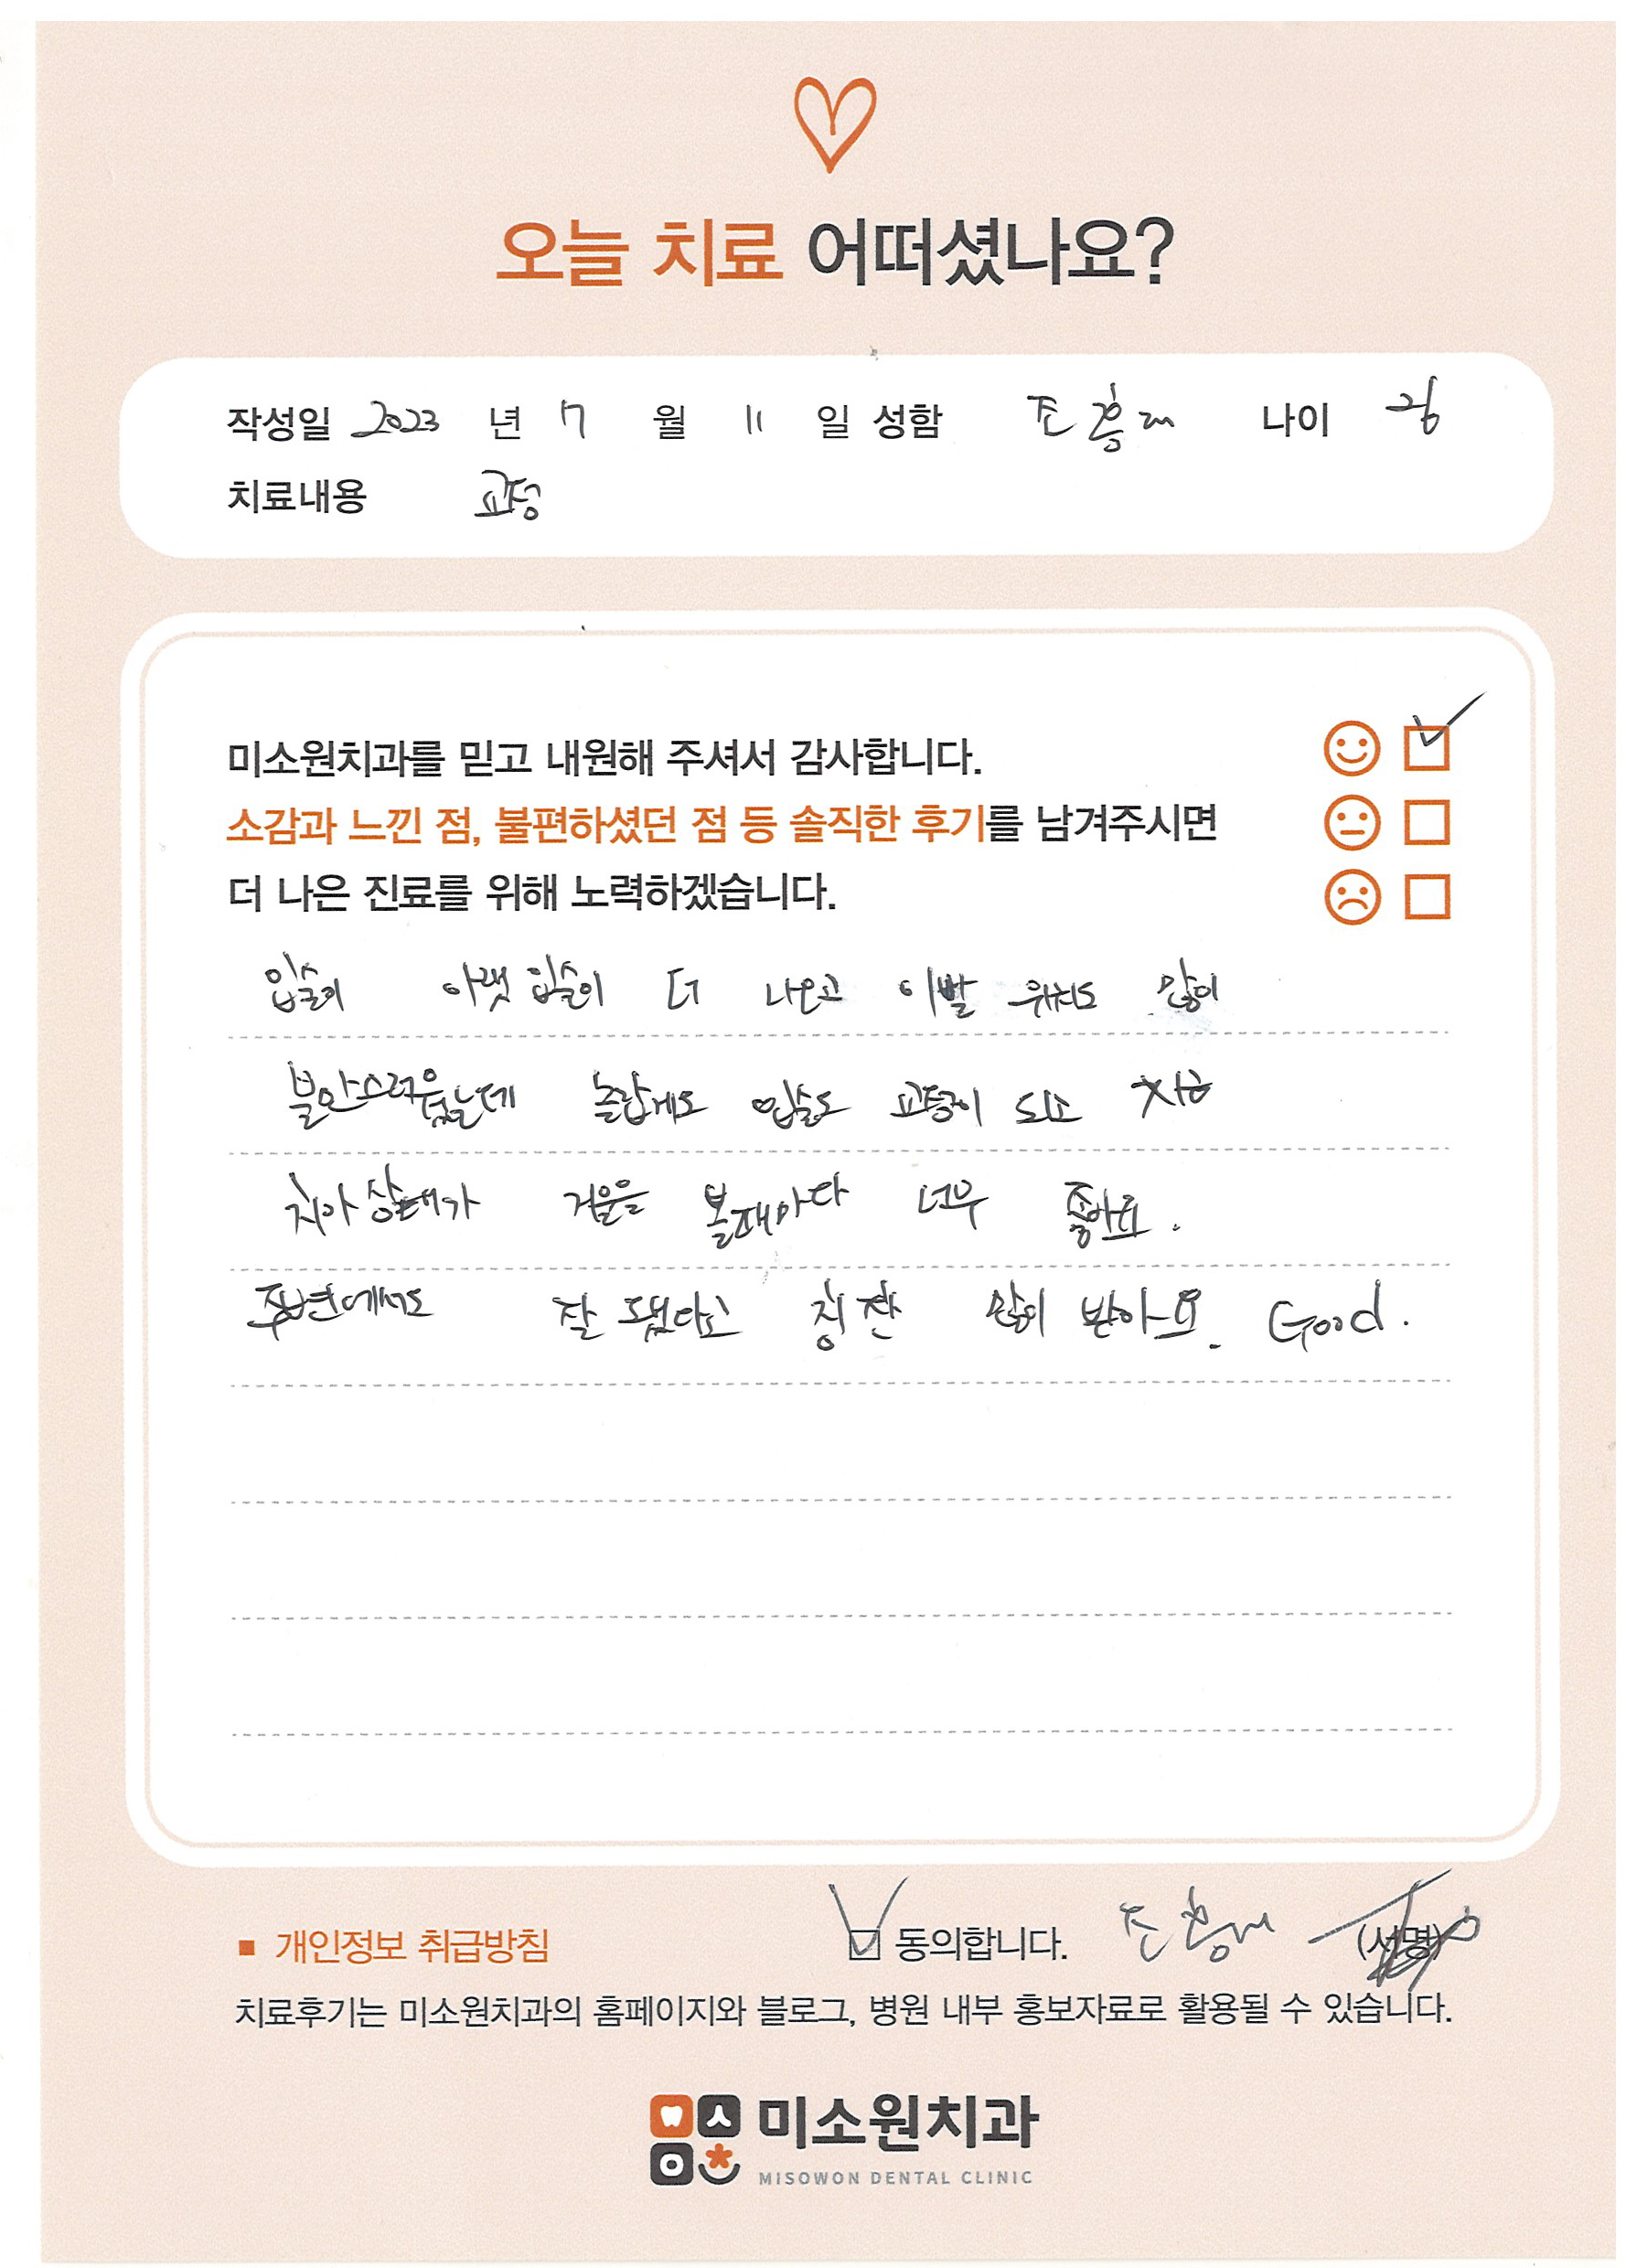 오늘 치료 어떠셨나요?
작성일 2023 년 7 월 11 일 성함 조흥래 나이
치료내용 교정
미소원치과를 믿고 내원해 주셔서 감사합니다.
소감과 느낀 점, 불편하셨던 점 등 솔직한 후기를 남겨주시면
더 나은 진료를 위해 노력하겠습니다.
입술이 아랫입술이 더 나오고 이빨 위치도 많이
불안스러웠는데 놀랍게도 입술도 교정이 되고 지금
치아상태가 거울을 볼때마다 너무 좋아요.
주변에서도 잘 됐다고 칭찬 많이 받아요. Good.
■ 개인정보 취급방침 동의합니다. (서명)
치료후기는 미소원치과의 홈페이지와 블로그, 병원 내부 홍보자료로 활용될 수 있습니다.
미소원치과
MISOWON DENTAL CLINIC